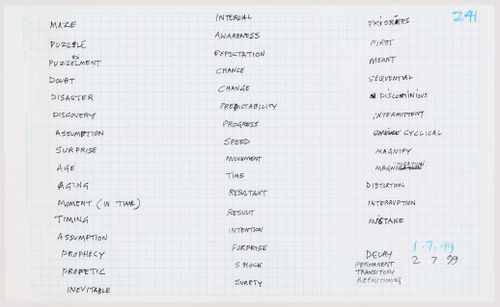 MAZE
PUZZLE
PUZZELMENT
DOUBT
DISASTER
DISCOVERY
ASSUMPTION
SURPRISE
AGE
AGING
MOMENT (IN TIME)
TIMING
ASSUMPTION
PROPHECY
PROFETIC
INEVITABLE
INTERVAL
AWARENESS
EXPECTATION
CHANCE
CHANGE
PREDICTABILITY
PROGRESS
SPEED
MOVEMENT
TIME
RESULTANT
RESULT
INTENTION
SURPRISE
SHOCK
SURETY
241
FIRST
MEANT
SEQUENTAL
INTERMITTENT
CYCLICAL
MAGNIFY
DISTORTION
INTERRUPTION
MISTAKE
1.7.99
DELAY 2 7 99
PERMANENT
TRANSITORY
REPOSITIONING